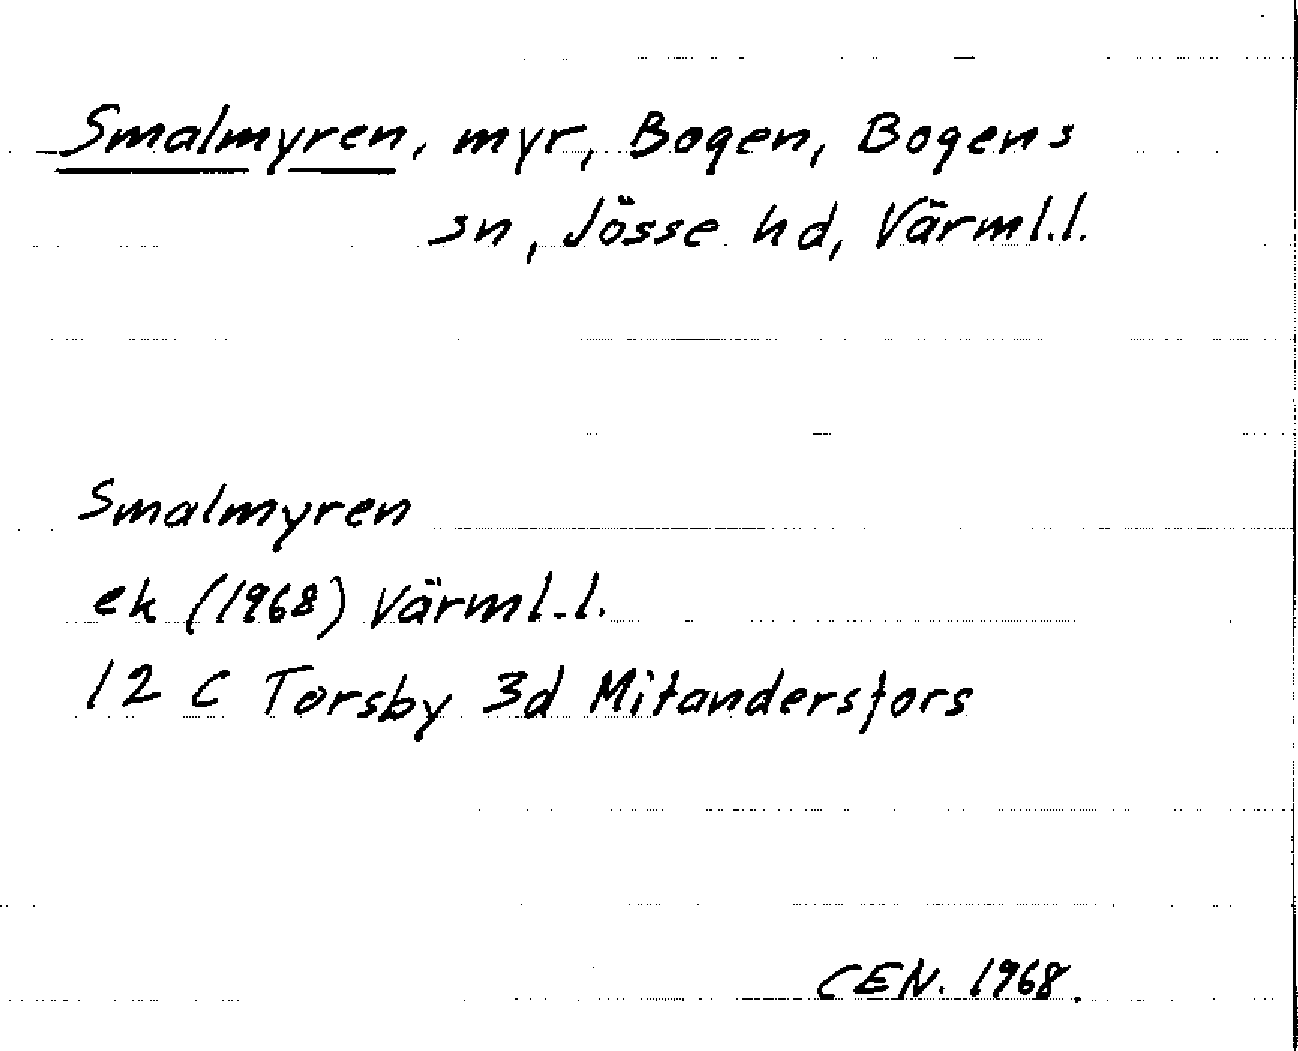 Smalmyren, myr, Bogen, Bogens
sn, Jösse hd, Värml.l.
Smalmyren
ek (1968) Värml.l.
12 C Torsby 3d Mitandersfors
CEN. 1968.